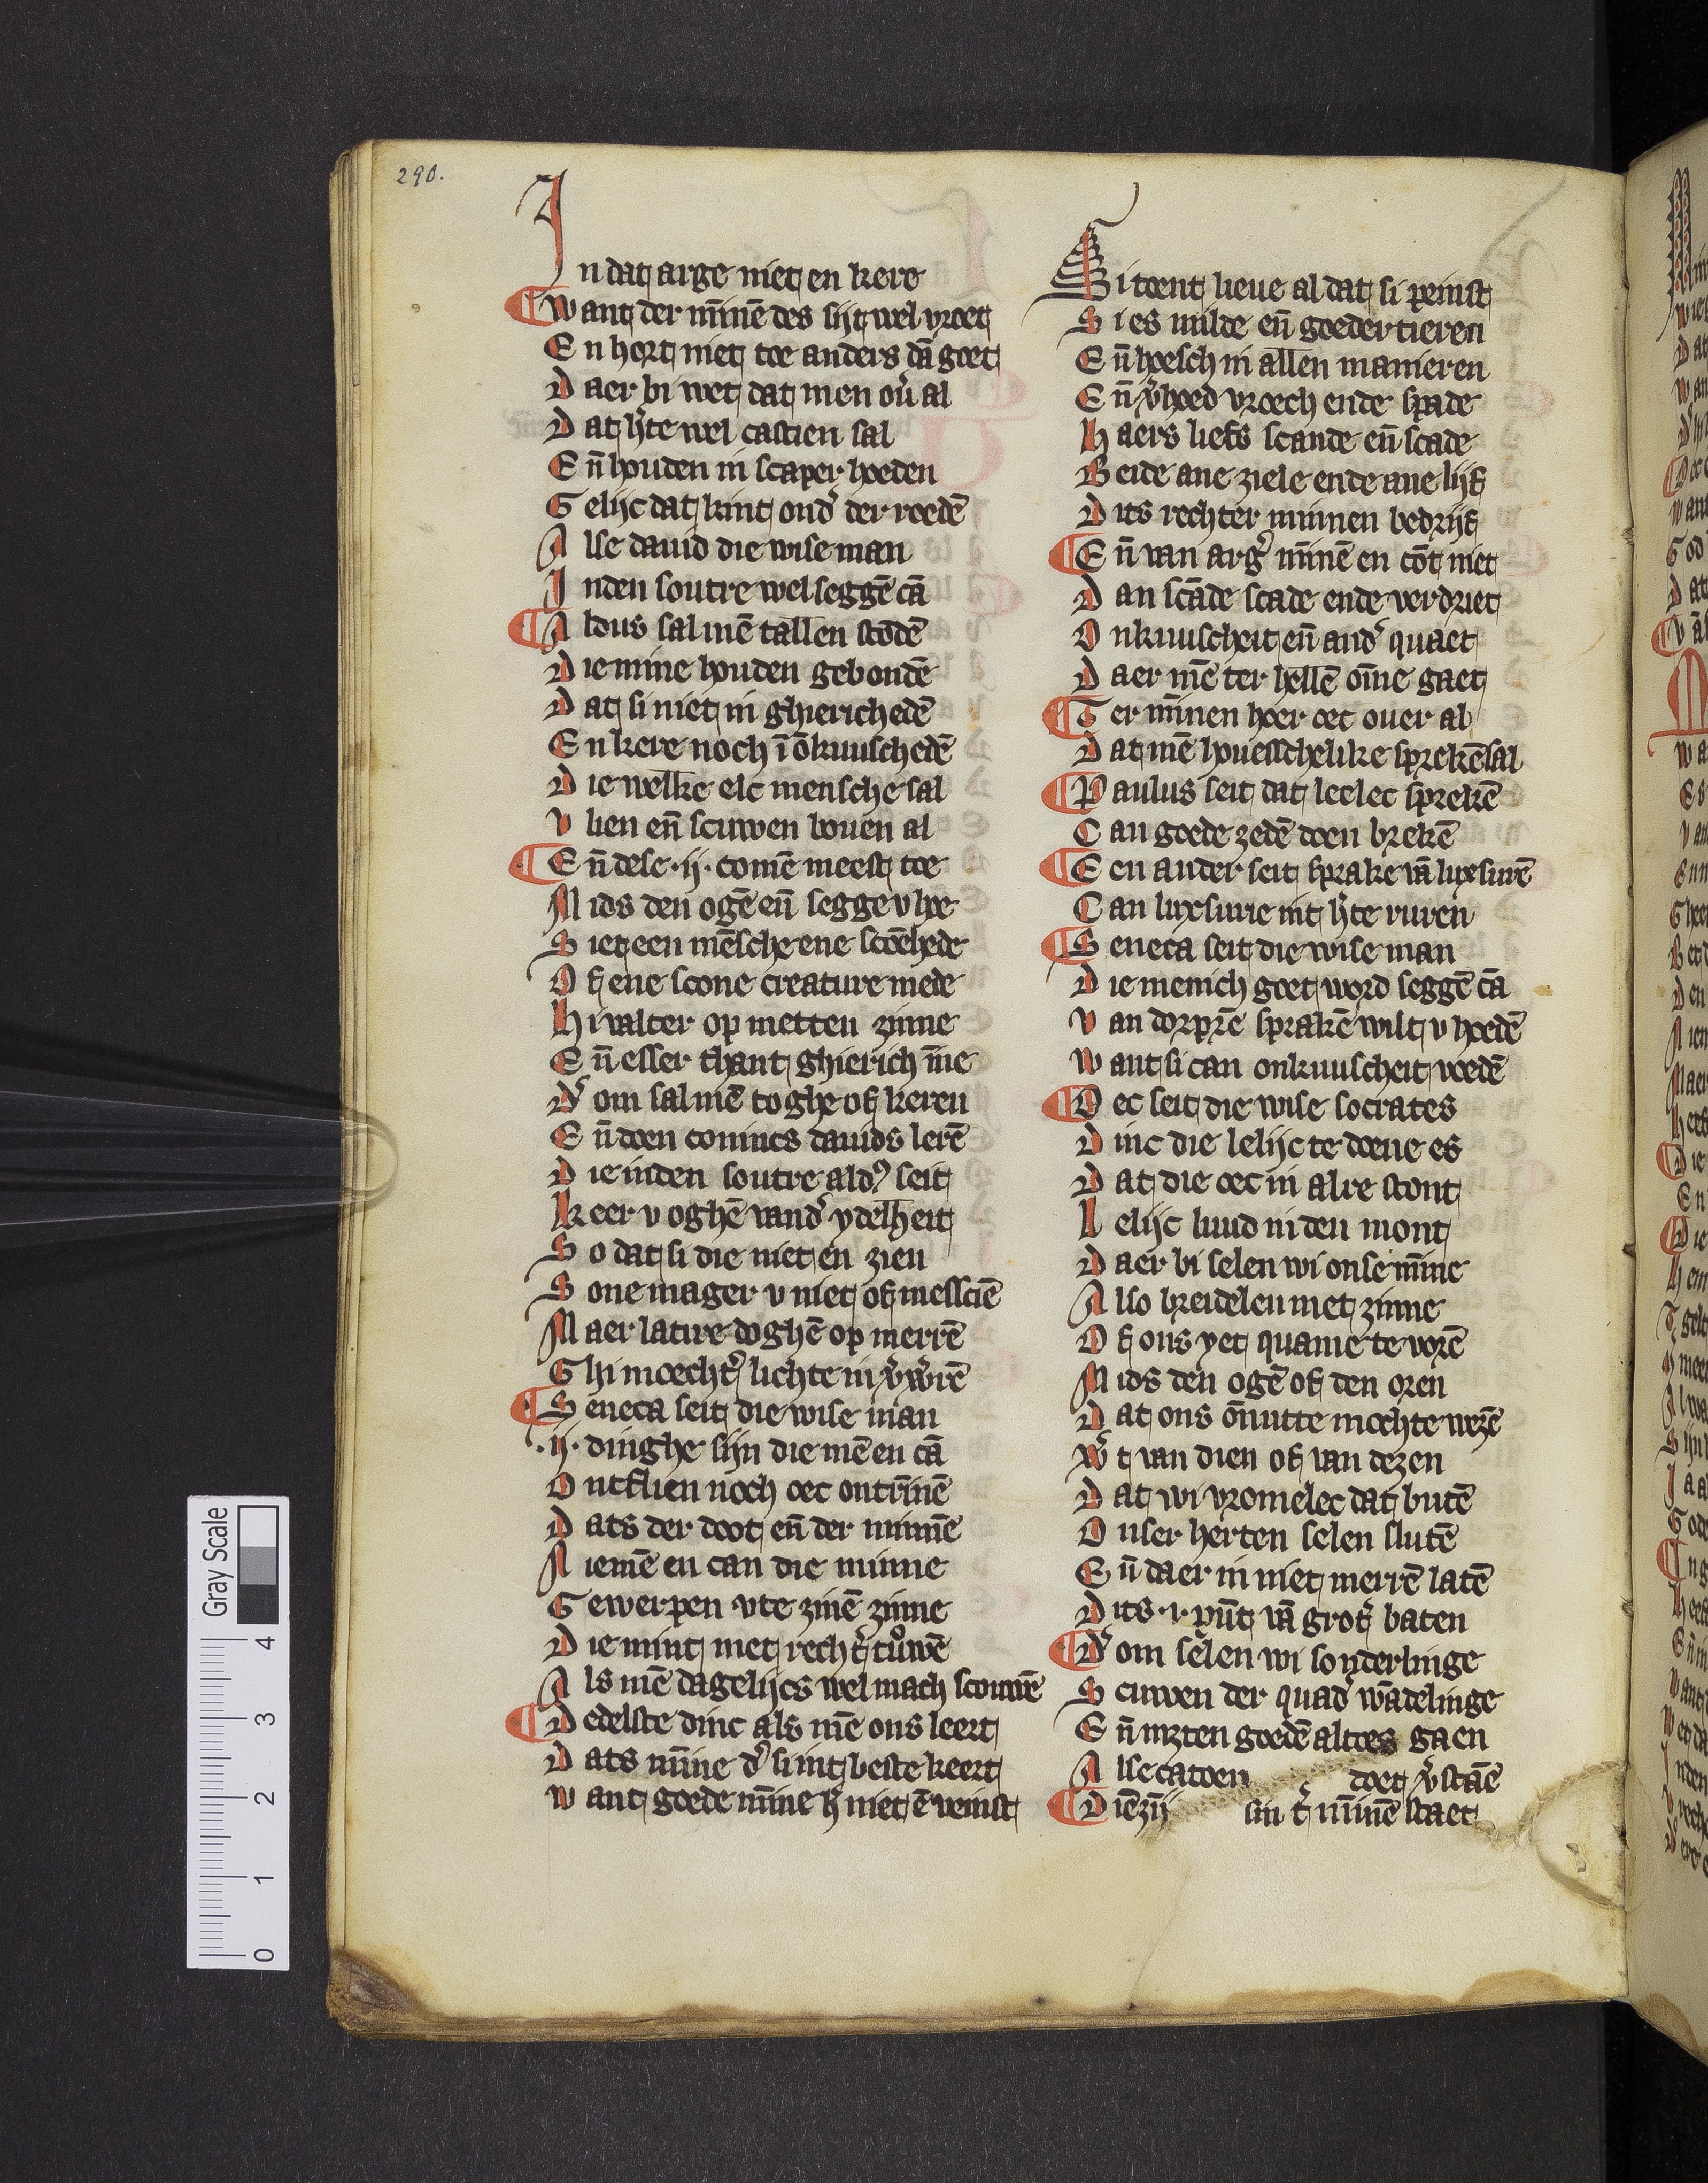 290.
In dat arge niet en kere
¶ want der mīnē des sijt wel vroet
En hort niet toe anders dā goet
Daer bi wet dat men ou̾ al
Dat h̾te wel castien sal
En̄ houden in scaper hoeden
Gelijc dat kint ond̾ der roedē
Alse dauid die wise man
Inden soutre wel seggē cā
¶ Aldus sal mē tallen stōdē
Die mine houden gebondē
Dat si niet in ghierichedē
En kere noch ī ōkuuschedē
Die welke elc mensche sal
Vlien en̄ scuwen bouen al
¶ En̄ dese .ij. comē meest toe
Mids den ogē en̄ segge v hoe
Siet een mēsche ene scoēhede
Of ene scone creature mede
Hi valter op metten zinne
En̄ esser thant ghierich īne
D̾ om sal mē toghe of keren
En̄ doen conincs dauids lerē
Die inden soutre ald̾ seit
Keer v oghē vand̾ ydelheit
So dat si die niet en zien
Sone mager v niet of messciē
Maer latire doghē op merrē
Ghi moecht̾ lichte in v̾w̾rē
¶ Seneca seit die wise man
.ij. dinghe sijn die mē en cā
Ontflien noch oec ontr̄inē
Dats der doot en̄ der minnē
Niemē en can die minne
Gewerpen vte zinē zinne
Die mint met recht̾ truwē
Als mē dagelijcs wel mach scouwē
¶ Dedelste dinc als mē ons leert
Dats mīne d̾ si int beste keert
Want goede mīne h̾ niet ē veinst
Si toent lieue al dat si peinst
Si es milde en̄ goedertieren
En̄ hoesch in allen manieren
En̄ v̾hoed vroech ende spade
Haers liefs scande en̄ scade
Beide ane ziele ende ane lijf
Dits rechter minnen bedrijf
¶ En̄ van arg̾ mīnē en cōt niet
Dan scāde scade ende verdriet
Onkuuscheit en̄ and̾ quaet
Daer mē ter hellē ōme gaet
¶ Ter mīnen hoer oec ouer al
Dat mē houesschelike sprekē sal
¶ Paulus seit dat leelec sprekē
Can goede zedē doen brekē
¶ Een ander seit sprake vā luxsurē
Can luxsurie int h̾te vuren
¶ Seneca seit die wise man
Die menich goet word seggē cā
Van dorprē sprakē wilt v hoedē
Want si can onkuuscheit voedē
¶ Oec seit die wise socrates
Dinc die lelijc te doene es
Dat die oec in alre stont
Lelijc luud in den mont
Daer bi selen wi onse mīne
Also breidelen met zinne
Of ons yet quame te vorē
Mids den ogē of den oren
Dat ons ōnutte mochte wezē
W̾t van dien of van dezen
Dat wi vromelec dat butē
Onser herten selen slutē
En̄ daer in niet merrē latē
Dits .i. pūt vā grot̾ baten
¶ D̾ om selen wi sonderlinge
Scuwen der quad̾ wādelinge
En̄ metten goedē altoes gaen
Alse catoen doet v̾staē
¶ Diē zij sin t̾ mīnē staet
Gray Scale
0 1 2 3 4